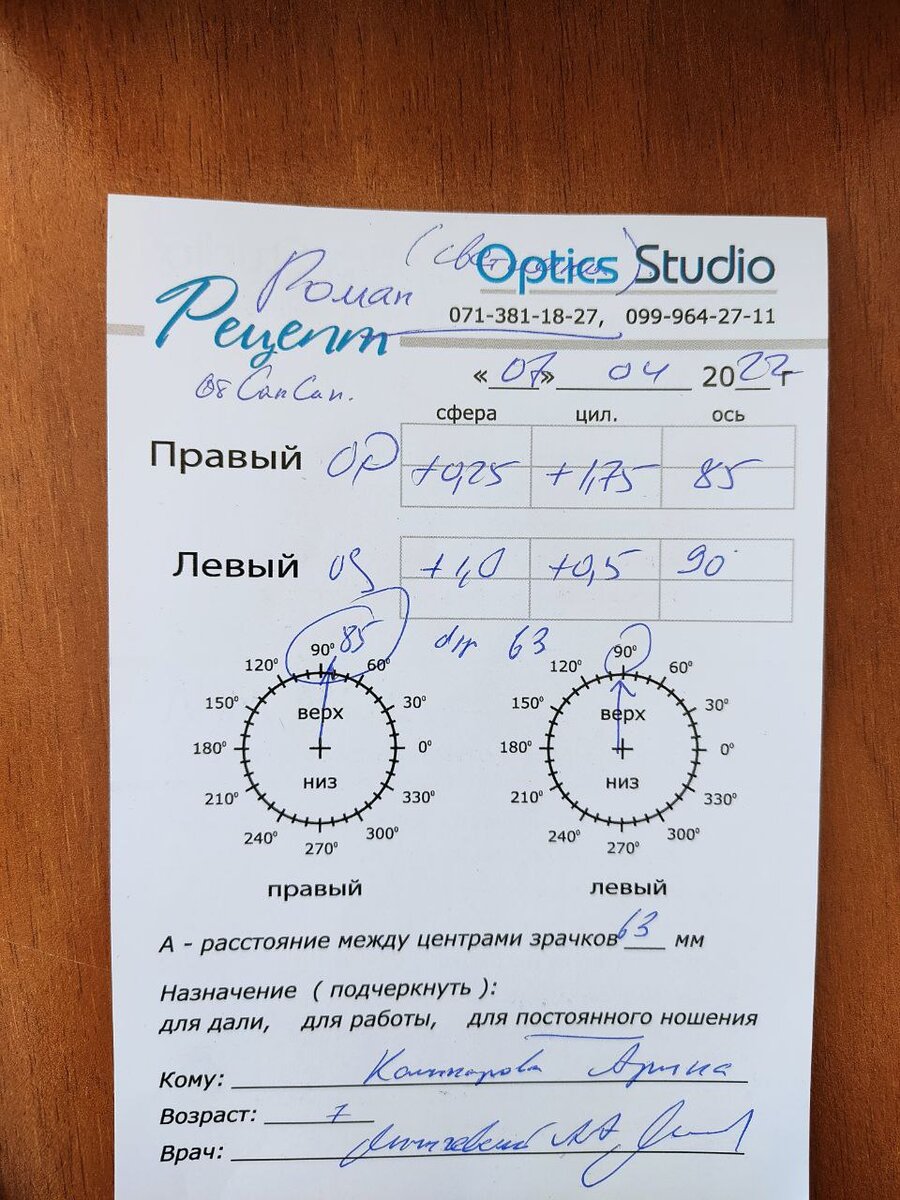 Роман
Optics Studio
Рецепт
071-381-18-27, 099-964-27-11
«07» 04 2022 г
сфера цил. ось
Правый OD +0,25 +1,75 85
Левый OS +1,0 +0,5 90
85 dpp 63
90° 60° 30° 0° 330° 300° 270° 240° 210° 180° 150° 120°
верх
низ
правый
90° 60° 30° 0° 330° 300° 270° 240° 210° 180° 150° 120°
верх
низ
левый
А - расстояние между центрами зрачков 63 мм
Назначение ( подчеркнуть ):
для дали, для работы, для постоянного ношения
Кому: Арина
Возраст: 7
Врач: